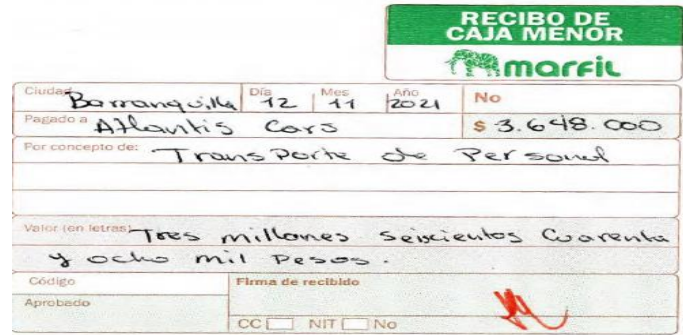 RECIBO DE
CAJA MENOR
marfil
Ciudad Barranquilla Día 12 Mes 11 Año 2021 No
Pagado a Atlantis Cars $ 3.648.000
Por concepto de: Transporte de Personal
Valor (en letras) Tres millones seiscientos Cuarenta
y ocho mil Pesos.
Código Firma de recibido
Aprobado
CC NIT No